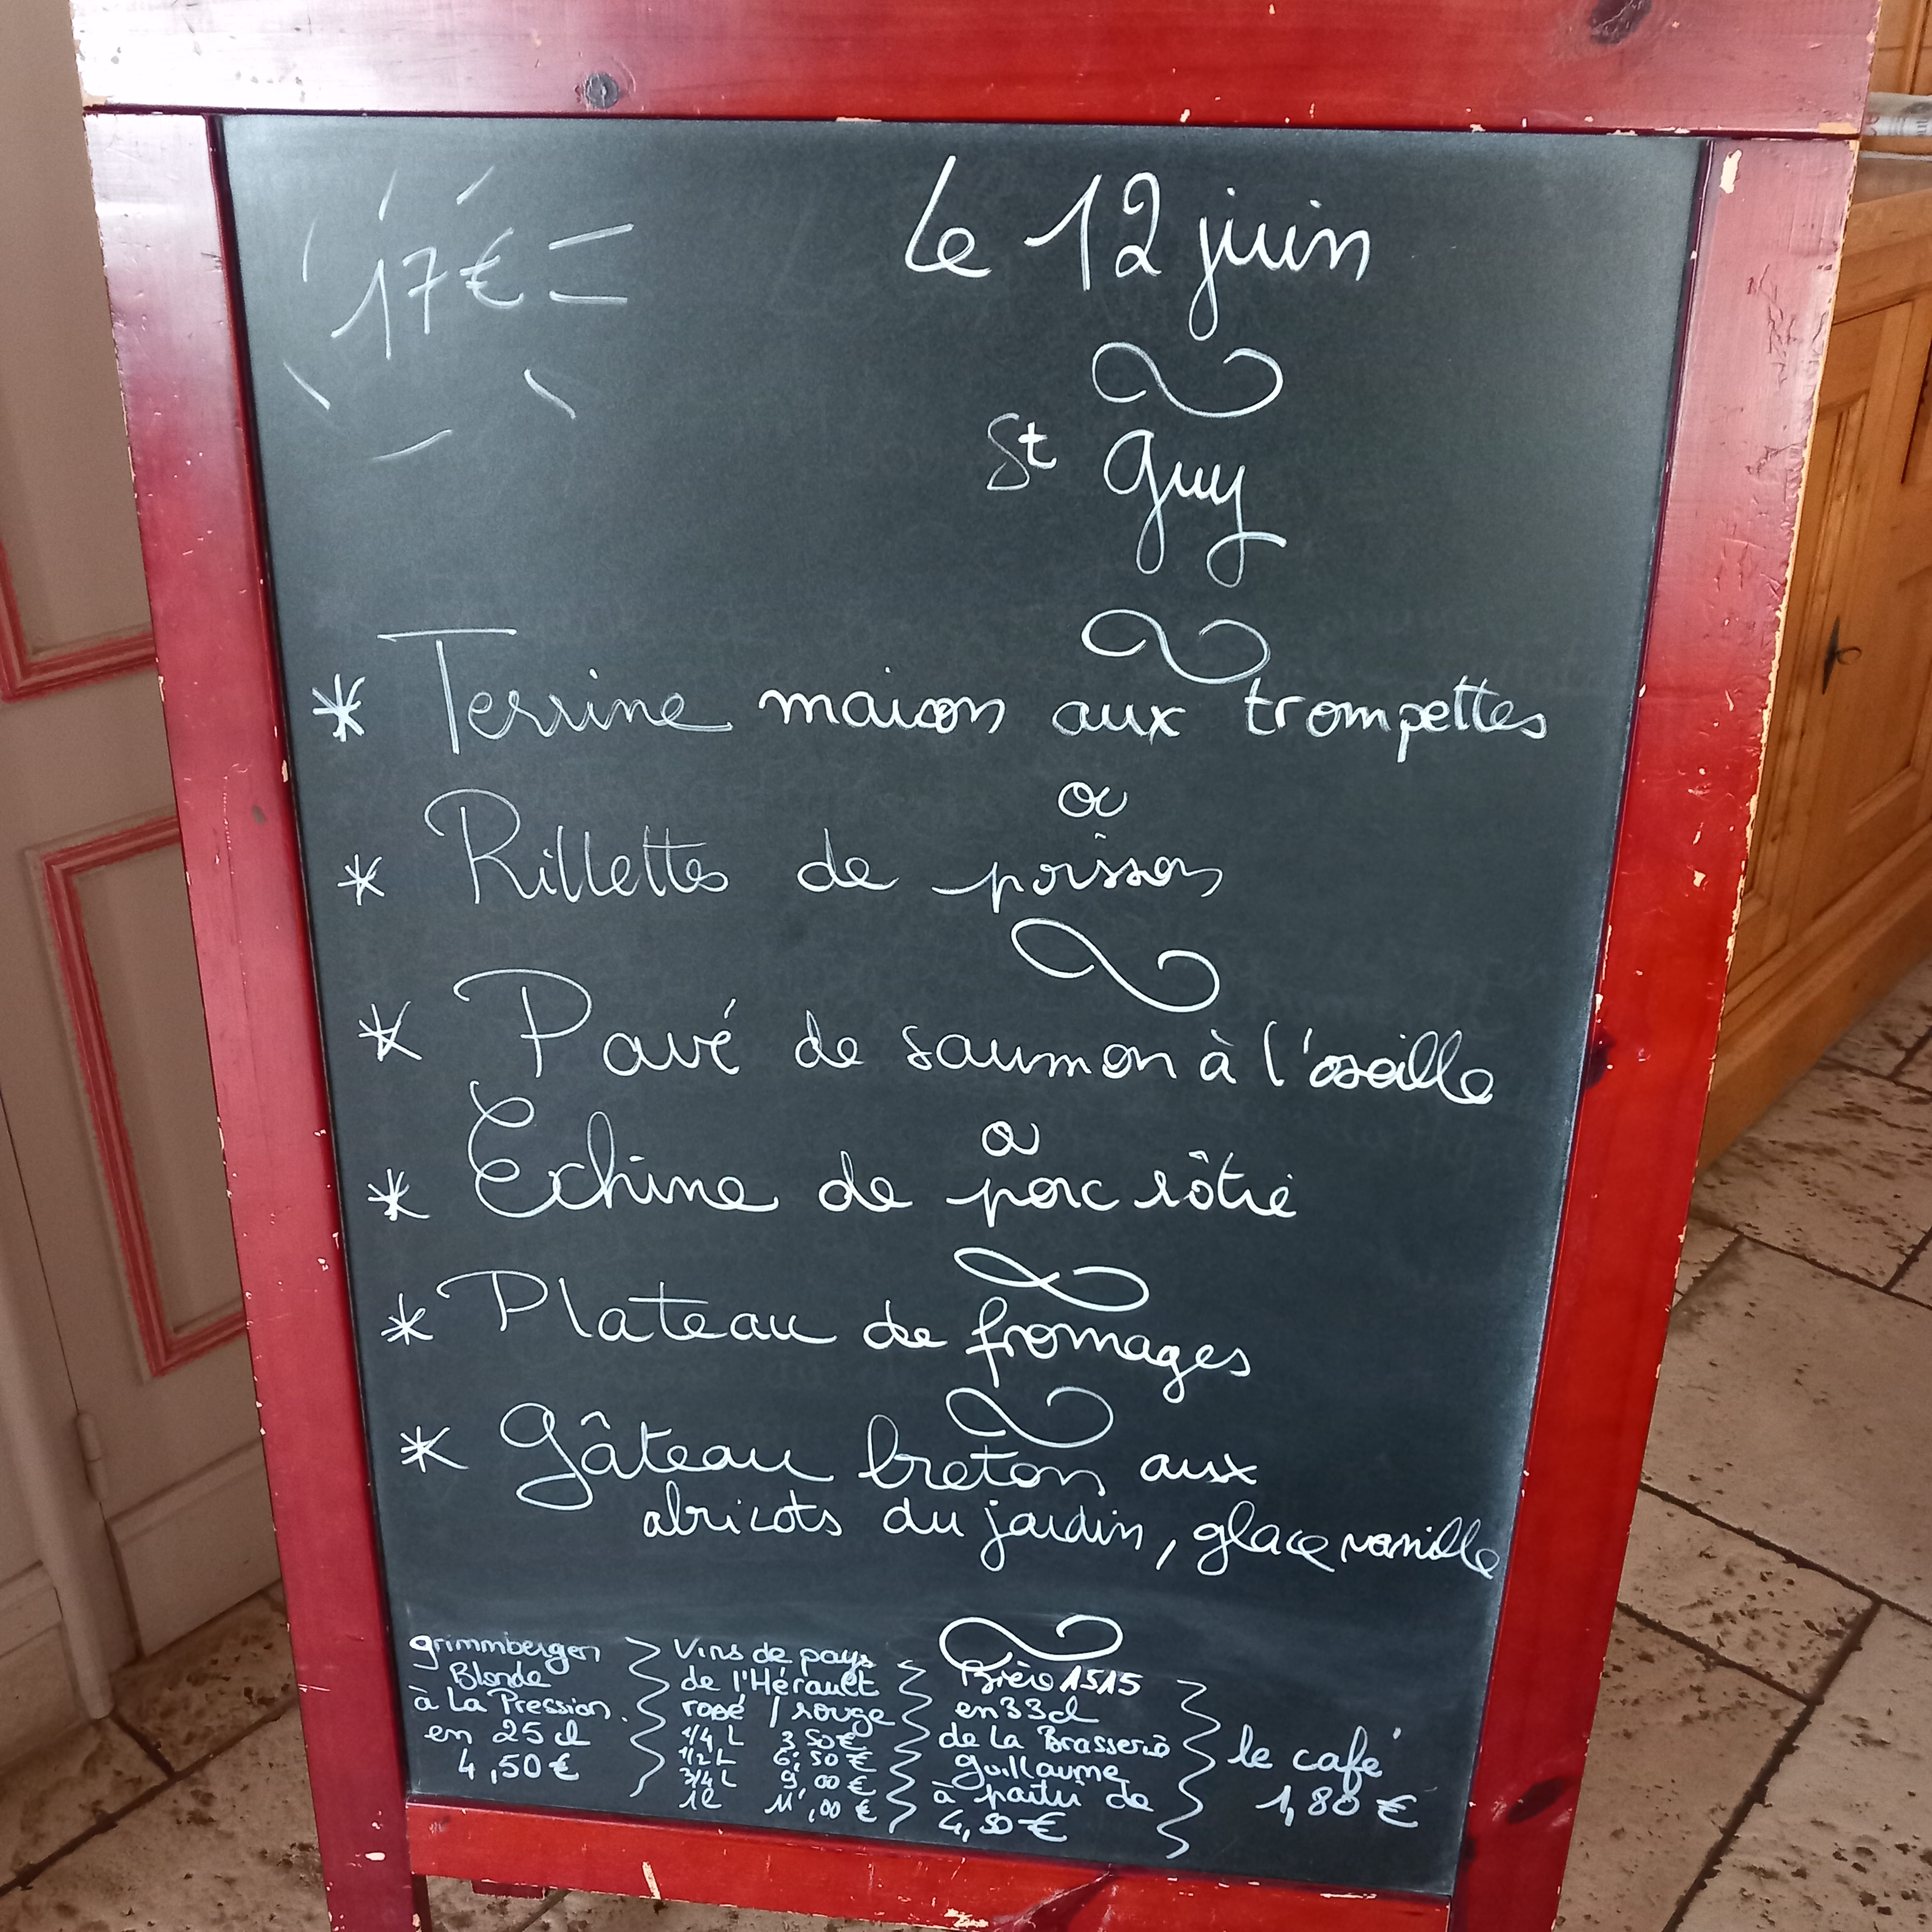 17€
Le 12 juin
St Guy
* Terrine maison aux trompettes
ou
* Rillettes de poisson
* Pavé de saumon à l'oseille
ou
* Echine de porc rôtie
* Plateau de fromages
* Gâteau breton aux
abricots du jardin, glace vanille
Grimmbergen
Blonde
à La Pression.
en 25 cl
4,50€
Vins de pays
de l'Hérault
rosé / rouge
1/4 L 3,50€
1/2 L 6,50€
3/4 L 9,00€
1L 11,00€
Bière 1515
en 33cl
de La Brasserie
Guillaume
à partir de
4,50€
le café
1,80€